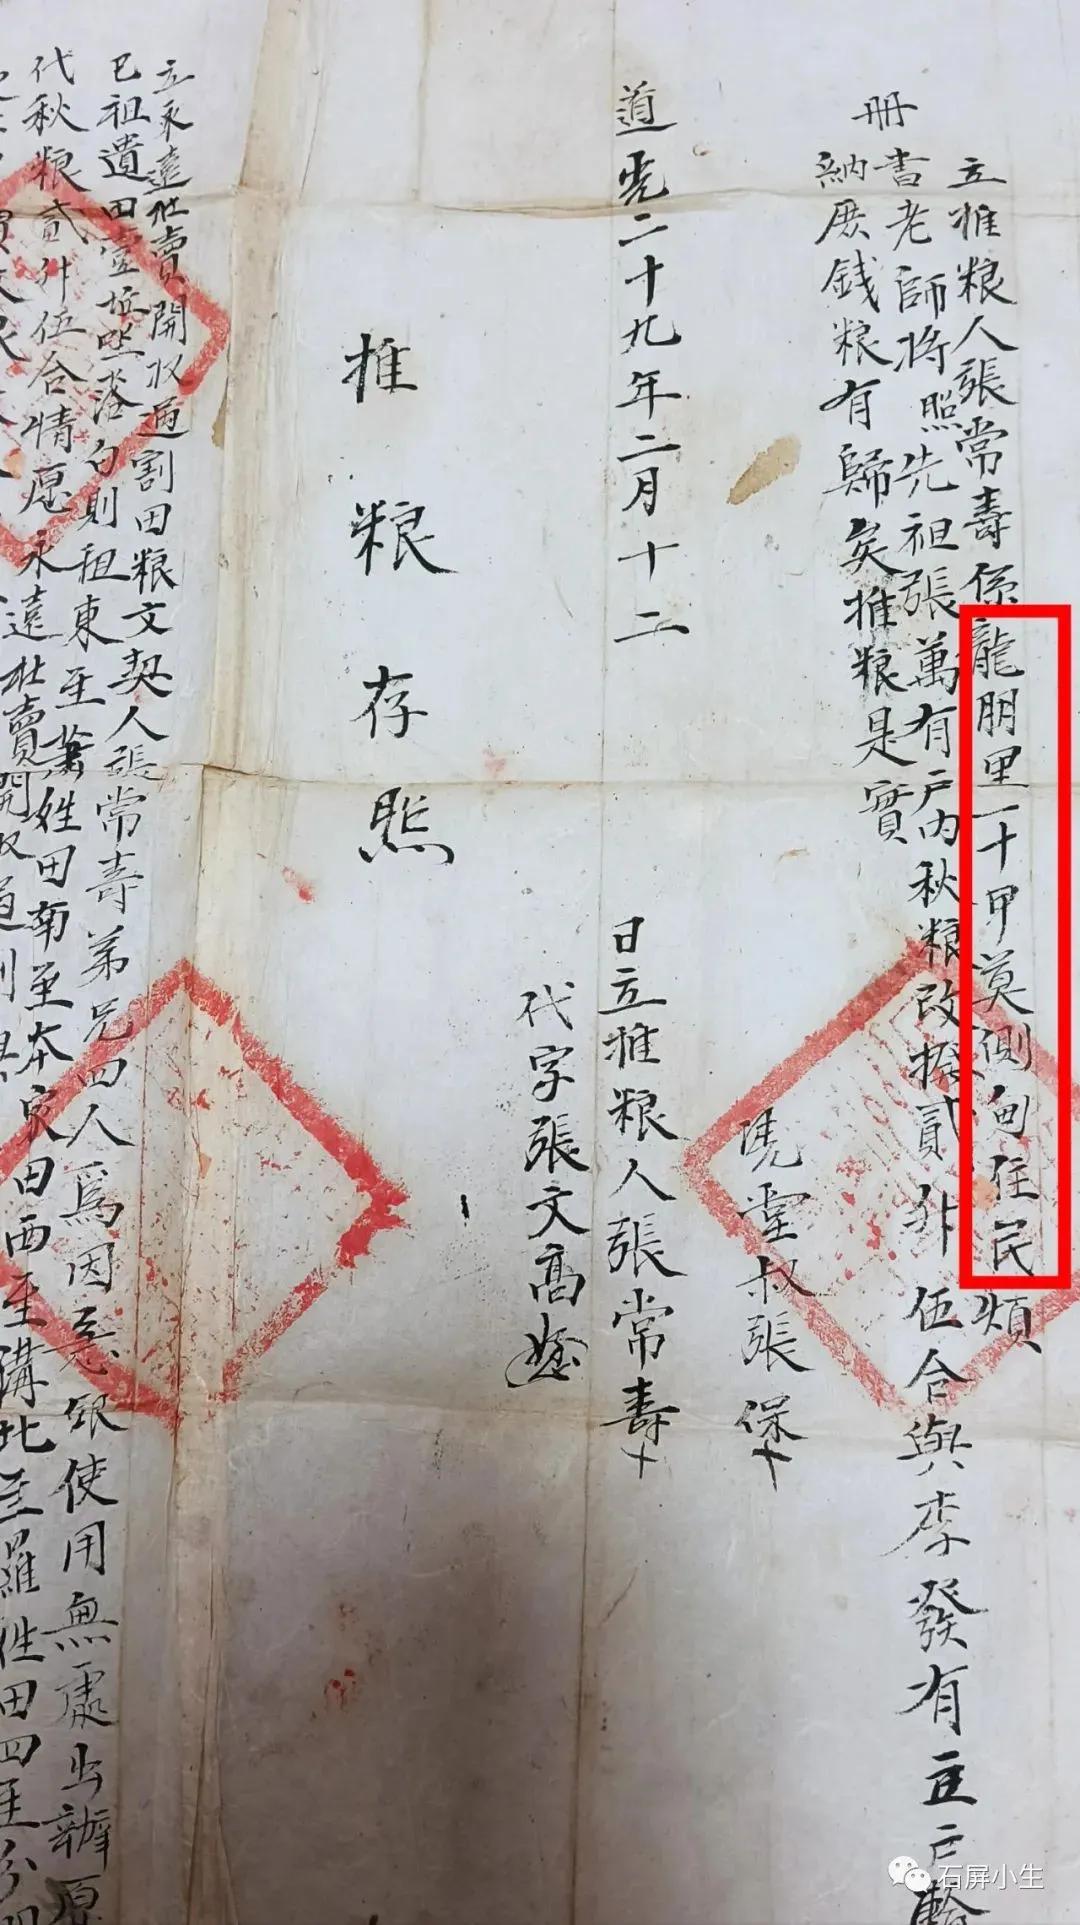 立推粮人張常壽係龍朋里一十甲莫側甸住民煩
冊書老師將照先祖張萬有戶内秋粮改撥貳升伍合與李發有立戶輸
納庶錢粮有歸矣推粮是實
憑堂叔張保十
道光二十九年二月十二日立推粮人張常壽十
代字張文高
推粮存照
立永遠杜賣開收過割田粮文契人張常壽弟兄四人為因乏銀使用無處出辦愿
已祖遺田壹坵坐落勺則租東至蕭姓田南至本家田西至溝北至羅姓田四至分明
代秋粮貳升伍合情愿永遠杜賣開收過割
石屏小生